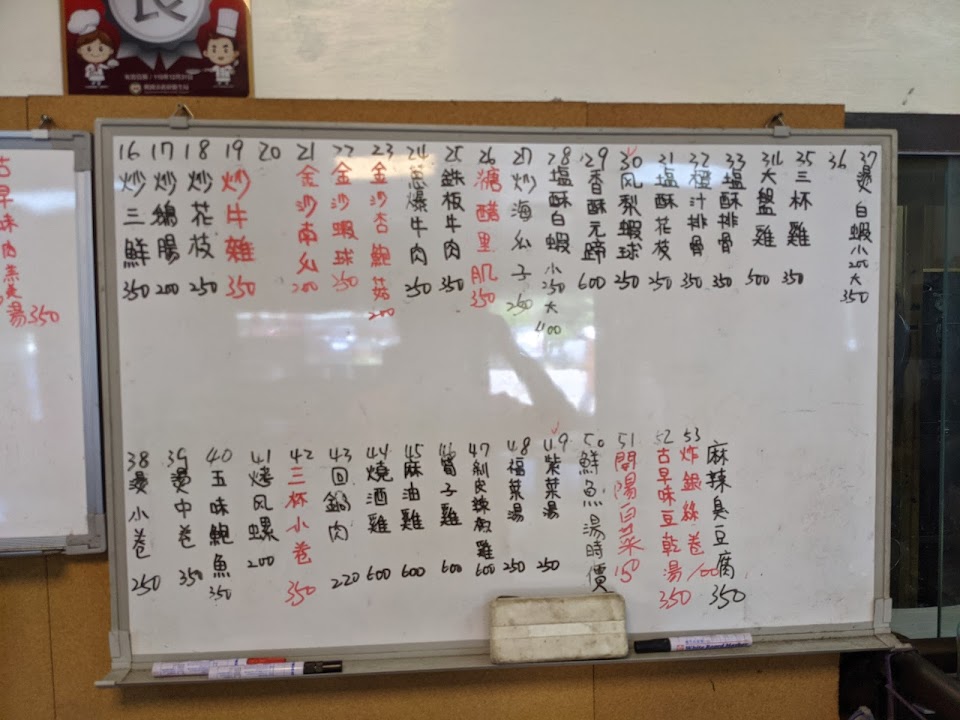 良
古早味肉羹湯350
16 炒三鮮 350
17 炒鵝腸 200
18 炒花枝 250
19 炒牛雜 350
20
21 金沙南瓜 200
22 金沙蝦球 250
23 金沙杏鮑菇 200
24 蔥爆牛肉 250
25 鉄板牛肉 350
26 糖醋里肌 350
27 炒海瓜子 250
28 塩酥白蝦 小250大400
29 香酥元蹄 600
30 风梨蝦球 250
31 塩酥花枝 250
32 橙汁排骨 350
33 塩酥排骨 350
34 大盤雞 500
35 三杯雞 350
36
37 燙白蝦小200大350
38 燙小卷 250
39 燙中卷 350
40 五味鮑魚 350
41 烤风螺 200
42 三杯小卷 350
43 回鍋肉 220
44 燒酒雞 600
45 麻油雞 600
46 筍子雞 600
47 剝皮辣椒雞 600
48 福菜湯 250
49 紫菜湯 250
50 鮮魚湯時價
51 開陽白菜 150
52 古早味豆乾湯 350
53 炸銀絲卷 100
麻辣臭豆腐 350
White Board Marker